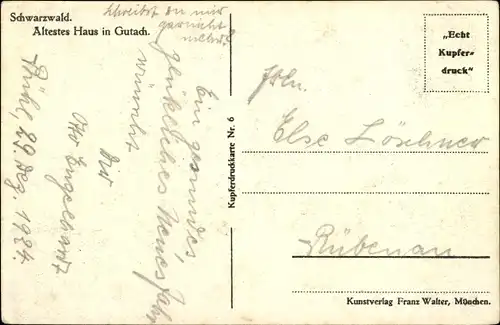 Schwarzwald.
Ältestes Haus in Gutach.
Schreibst du mir
garnicht
mehr?
Ein gesundes,
glückliches Neues Jahr
wünscht
Dir
Otto Engelhardt
Brühl, 29. Dez. 1924.
Kupferdruckkarte Nr. 6
„Echt
Kupfer-
druck"
Frln.
Else Löschner
Rübenau
Kunstverlag Franz Walter, München.